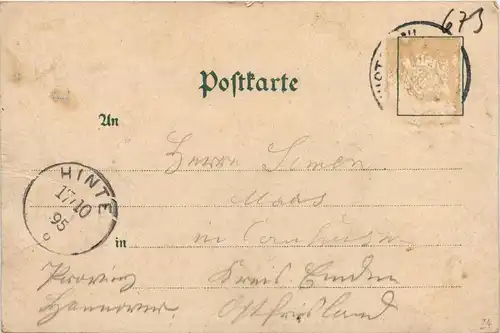 673
Postkarte
An
Herrn Simon
Maas
HINTE
17/10
95
in
in
Provinz Kreis Emden
Hannover Ostfriesland
24